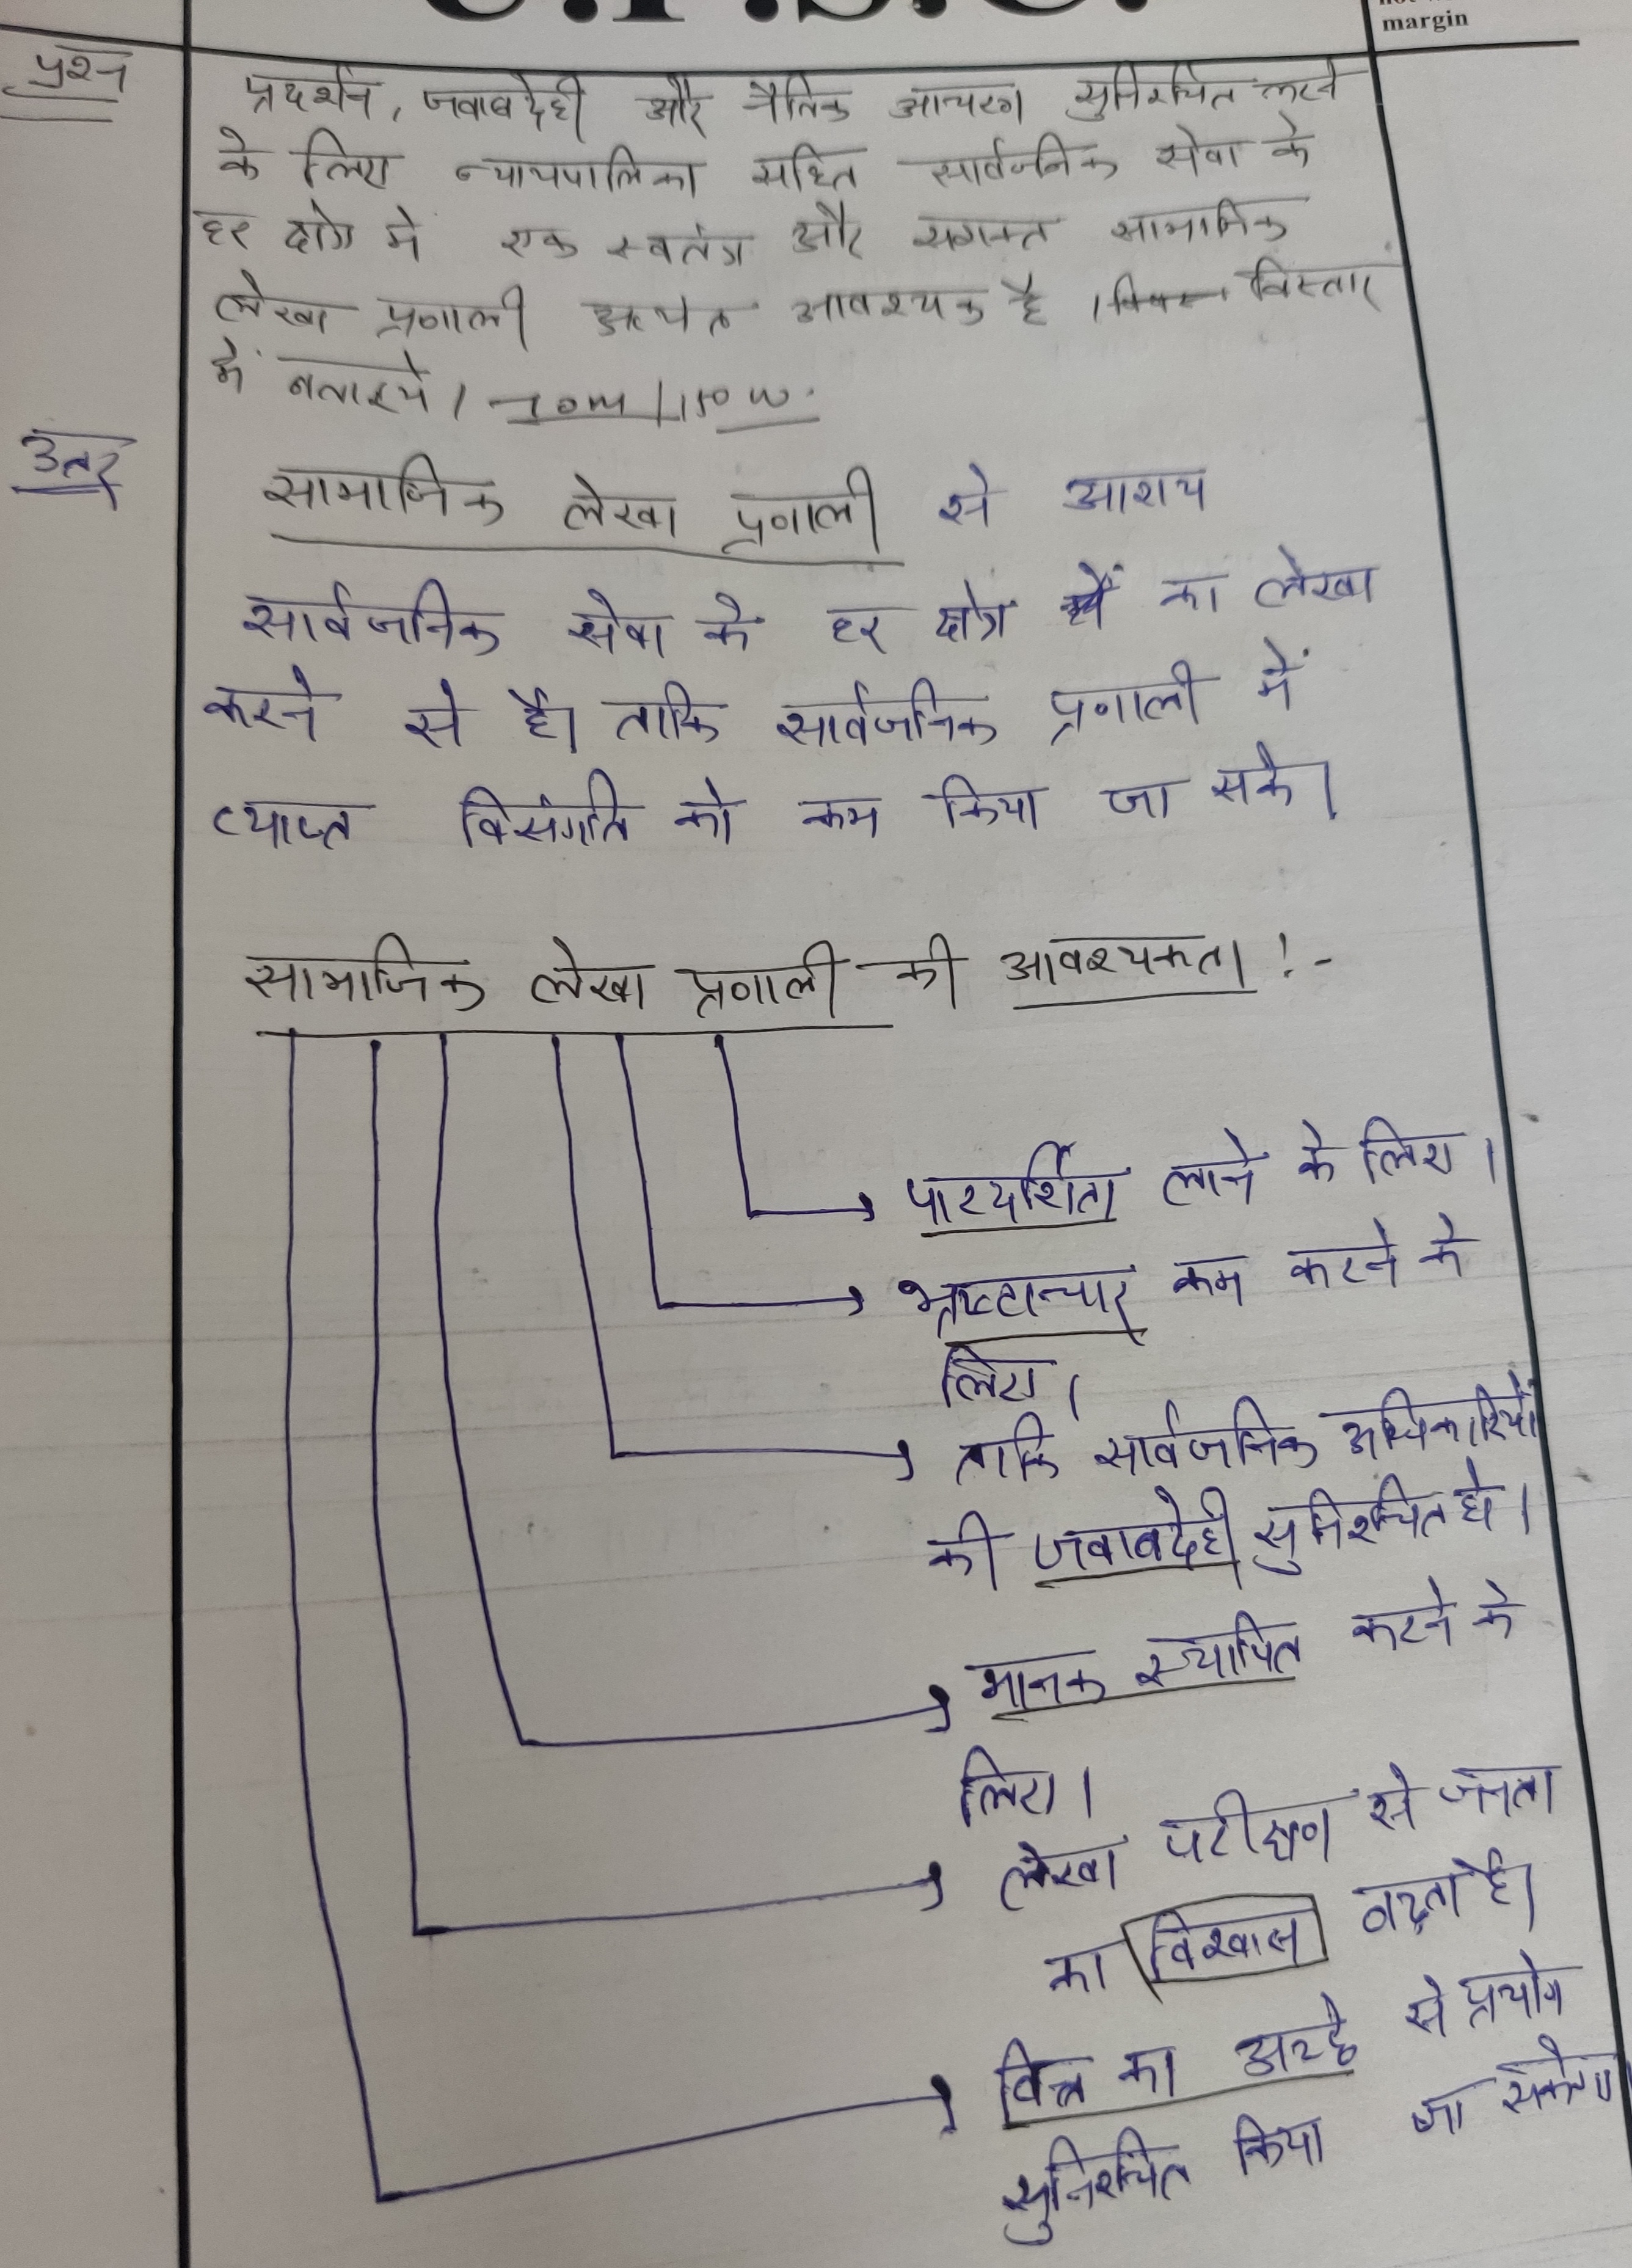 U.P.S.C.
margin
प्रश्न
प्रदर्शन, जवाबदेही और नैतिक आचरण सुनिश्चित करने
के लिए न्यायपालिका सहित सार्वजनिक सेवा के
हर क्षेत्र मे एक स्वतंत्र और सशक्त सामाजिक
लेखा प्रणाली अत्यंत आवश्यक है । विस्तार
में बताइये। 10m/150 w.
उत्तर
सामाजिक लेखा प्रणाली से आशय
सार्वजनिक सेवा के हर क्षेत्र का लेखा
करने से है। ताकि सार्वजनिक प्रणाली में
व्याप्त विसंगति को कम किया जा सके।
सामाजिक लेखा प्रणाली की आवश्यकता :-
पारदर्शिता लाने के लिए।
भ्रष्टाचार कम करने के
लिए।
ताकि सार्वजनिक अधिकारियों
की जवाबदेही सुनिश्चित हो।
मानक स्थापित करने के
लिए।
लेखा परीक्षण से जनता
का विश्वास बढ़ता है।
वित्त का अच्छे से प्रयोग
सुनिश्चित किया जा सकेगा।